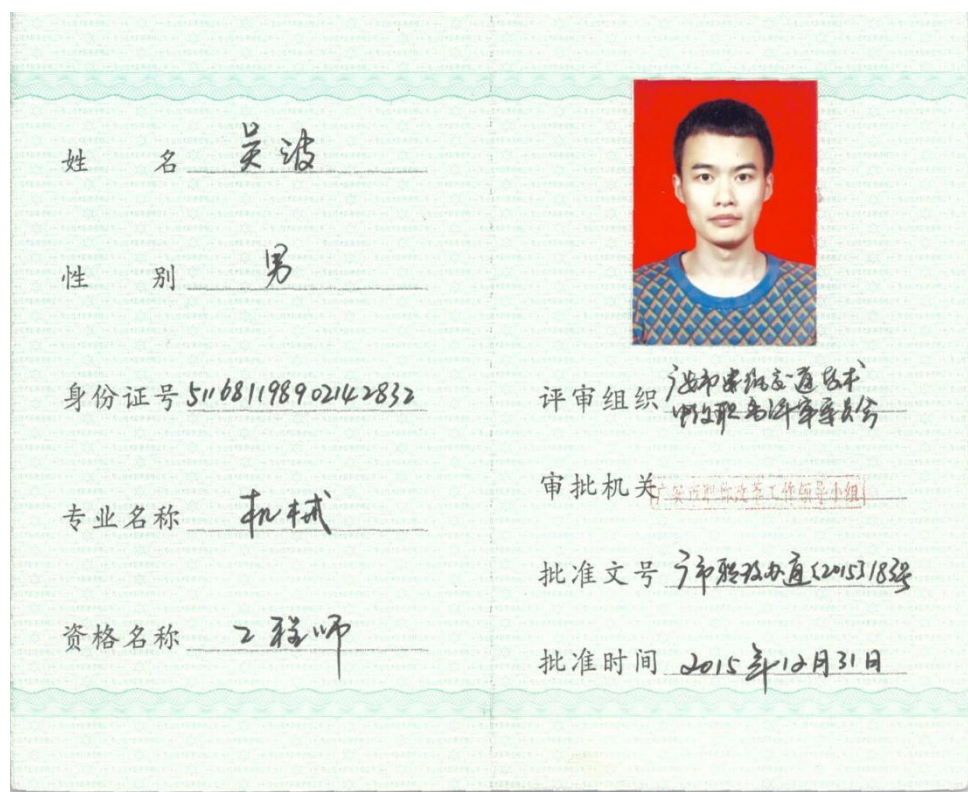 姓名 吴波
性别 男
身份证号 511681198902142832
专业名称 机械
资格名称 工程师
评审组织 广安市建筑交通技术
中级职务评审委员会
审批机关 广安市职称改革工作领导小组
批准文号 广市职改办通〔2015〕183号
批准时间 2015年12月31日